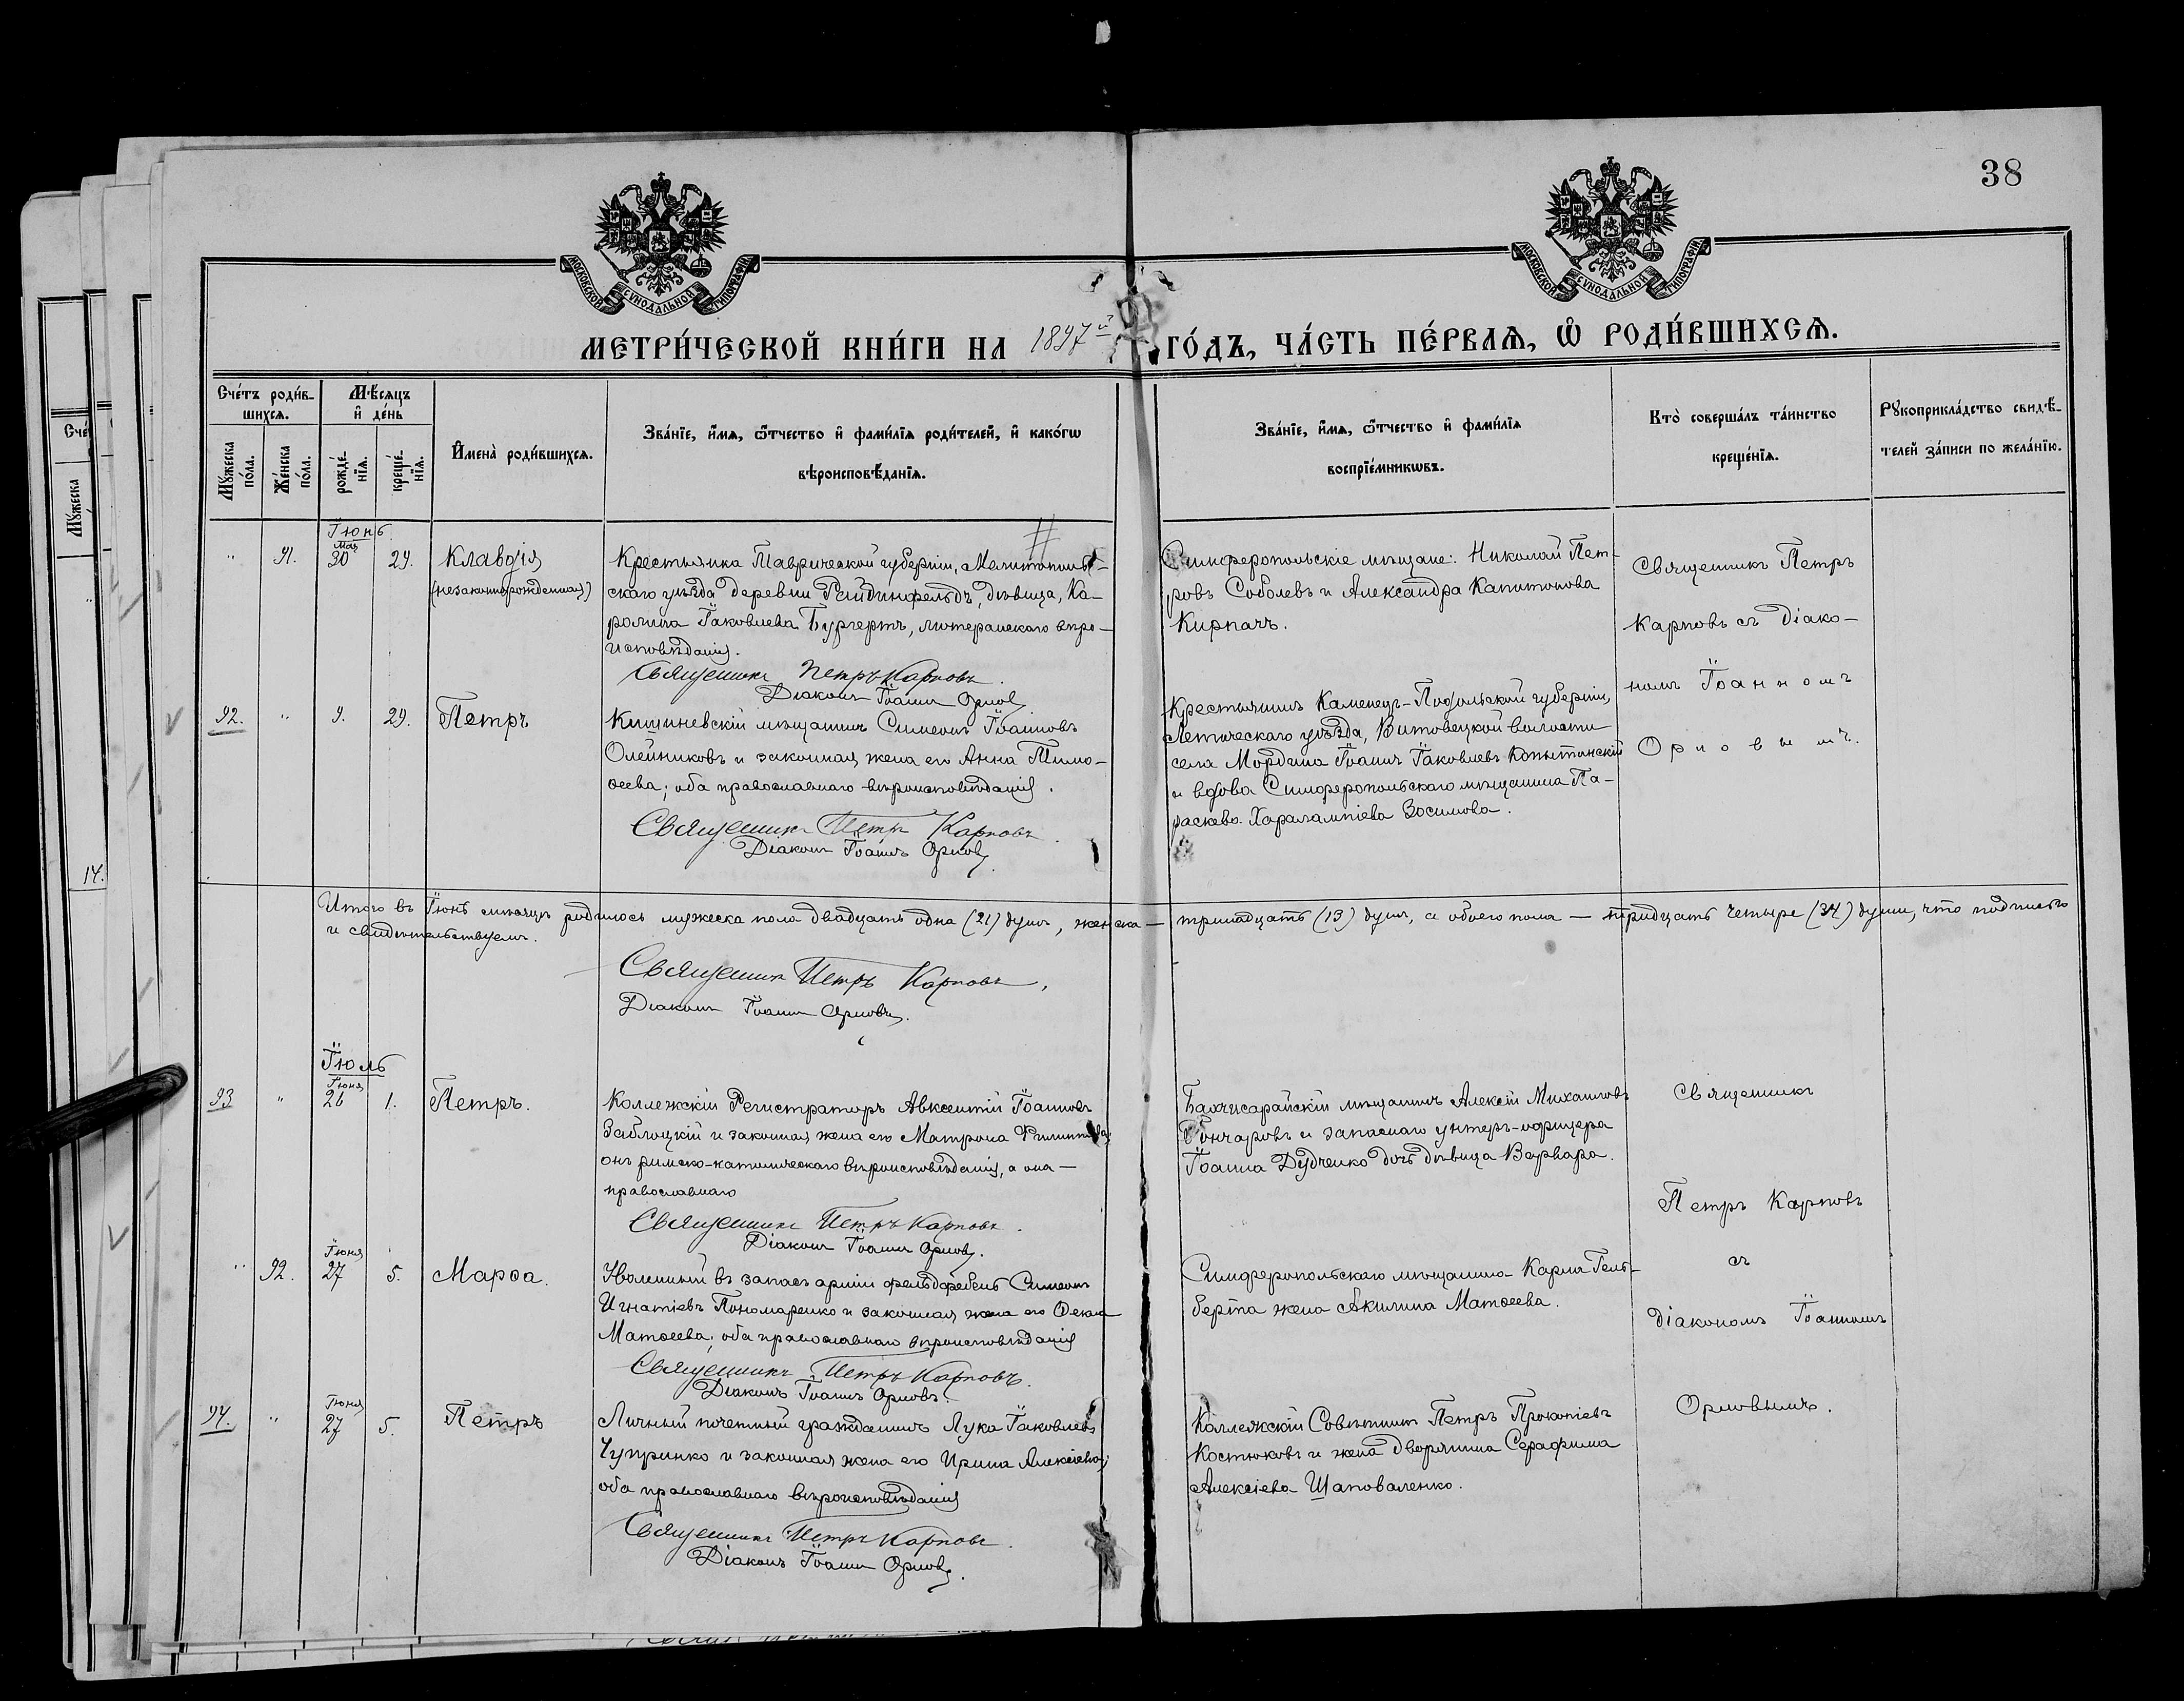 38
МОСКОВСКОЙ СУНОДАЛЬНОЙ ТИПОГРАФІИ
МОСКОВСКОЙ СУНОДАЛЬНОЙ ТИПОГРАФІИ
МЕТРИ́ЧЕСКОЙ КНИ́ГИ НА 1897й ГО́ДЪ, ЧА́СТЬ ПЕ́РВАѦ, Ѡ РОДИ́ВШИХСѦ.
Сче́тъ роди́в-
шихсѧ.
Мꙋ́жеска по́ла.
Же́нска по́ла.
Мѣ́сѧцъ
и҆ де́нь
рожде́-
нїѧ.
креще́-
нїѧ.
И҆мена̀ роди́вшихсѧ.
Зва́нїе, и҆́мѧ, ѻ҆́тчество и҆ фами́лїѧ роди́телей, и҆ како́гѡ
вѣроисповѣ́данїѧ.
Зва́нїе, и҆́мѧ, ѻ҆́тчество и҆ фами́лїѧ
воспрїе́мникѡвъ.
Кто̀ соверша́лъ та́инство
креще́нїѧ.
Рꙋкоприкла́дство свидѣ́-
телей за́писи по жела́нїю.
Іюнь
" 91. Мая 30 29. Клавдія
(незаконнорожденная)
Крестьянка Таврической губерніи, Мелитополь-
скаго уѣзда деревни Рейдинфельдъ, дѣвица, Ка-
ролина Іаковлева Бургертъ, лютеранскаго вѣро-
исповѣданія.
Священникъ Петръ Карповъ.
Діаконъ Іоаннъ Орловъ
Симферопольскіе мѣщане: Николай Пет-
ровъ Соболевъ и Александра Капитонова
Кирпачъ.
Священникъ Петръ
Карповъ съ Діако-
номъ Іоанномъ
Орловымъ.
92. " 9. 29. Петръ
Кишиневскій мѣщанинъ Симеонъ Іоанновъ
Олейниковъ и законная жена его Анна Тимо-
ѳеева; оба православнаго вѣроисповѣданія.
Священникъ Петръ Карповъ.
Діаконъ Іоаннъ Орловъ.
Крестьянинъ Каменецъ-Подольской губерніи,
Летическаго уѣзда, Витовецкой волости
села Мордина Іоаннъ Іаковлевъ Копытинскій
и вдова Симферопольскаго мѣщанина Па-
раскева Харалампіева Зосимова.
Итого въ Іюнѣ мѣсяцѣ родилось мужеска пола двадцать одна (21) душъ, женска — тринадцать (13) душъ, а обоего пола — тридцать четыре (34) души, что подписью
и свидѣтельствуемъ.
Священникъ Петръ Карповъ,
Діаконъ Іоаннъ Орловъ.
Іюль
93 " Іюня 26 1. Петръ.
Коллежскій Регистраторъ Авксентій Іоанновъ
Заблоцкій и законная жена его Матрона Филиппова;
онъ римско-католическаго вѣроисповѣданія, а она —
православнаго
Священникъ Петръ Карповъ.
Діаконъ Іоаннъ Орловъ.
Бахчисарайскій мѣщанинъ Алексій Михаиловъ
Гончаровъ и запаснаго унтеръ-офицера
Іоанна Дудченко дочь дѣвица Варвара.
Священникъ
Петръ Карповъ
съ
Діакономъ Іоанномъ
Орловымъ.
" 92. Іюня 27 5. Марѳа.
Уволенный въ запасъ арміи фельдфебель Симеонъ
Игнатіевъ Пономаренко и законная жена его Ѳекла
Матѳеева; оба православнаго вѣроисповѣданія
Священникъ Петръ Карповъ.
Діаконъ Іоаннъ Орловъ.
Симферопольскаго мѣщанина Карла Гель-
берта жена Акилина Матѳеева.
94. " Іюня 27 5. Петръ
Личный почетный гражданинъ Лука Іаковлевъ
Чупринко и законная жена его Ирина Алексіева;
оба православнаго вѣроисповѣданія
Священникъ Петръ Карповъ.
Діаконъ Іоаннъ Орловъ.
Коллежскій Совѣтникъ Петръ Прокопіевъ
Костюковъ и жена дворянина Серафима
Алексіева Шаповаленко.
Сче
Мꙋжеска
14.